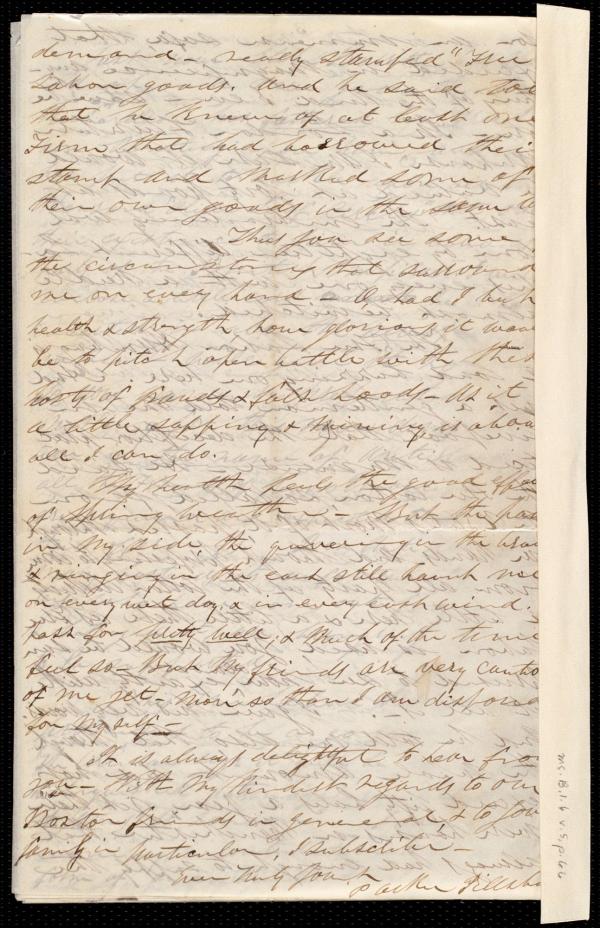 demand - ready stamped "Free
Labor goods. And he said too
that he knew of at least one
Firm that had borrowed thei
stamp and marked some of
their own goods in the same
Thus you see some
the circumstances that surround
me on every hand. - O had I but
health & strength, how glorious it wou
be to pitch open battle with the
host of frauds & falsehoods - As it
a little sapping & mining is abou
all I can do.
My health feels the good
of Spring weather - But the pai
in my side, the quivering in the
& ringing in the ears still haunt me
on every wet day, & in every east wind.
I pass for pretty well, & much of the time
feel so - But my friends are very cautio
of me yet - more so than I am dispose
for myself -
It is always delightful to hear fro
you - With my kindest regards to our
Boston friends in general, & to you
family in particular, I subscribe, -
Ever truly yours
Parker Pillsbu
Ms.B.1.6 v.5, p.66